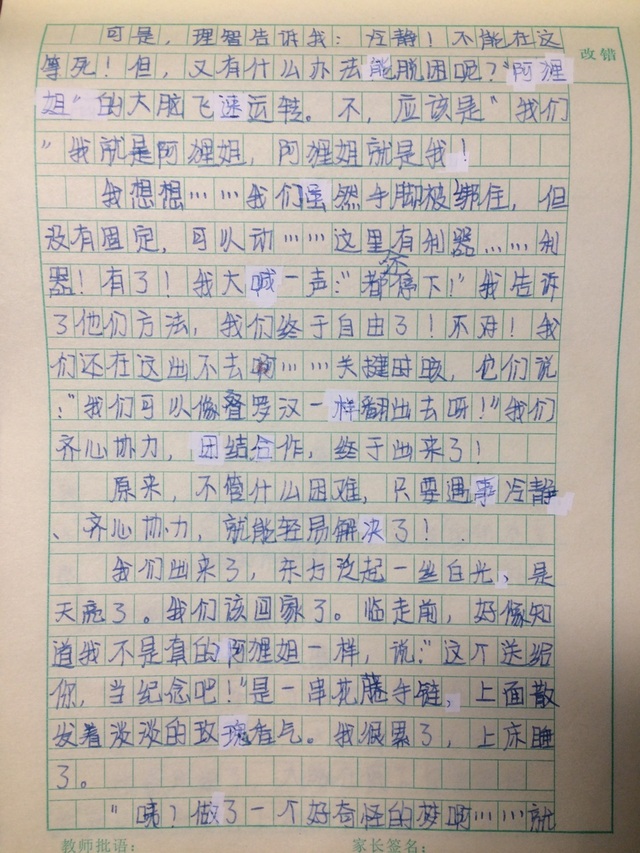 可是，理智告诉我：冷静！不能在这
改错
等死！但，又有什么办法能脱困呢？"阿狸
姐"的大脑飞速运转。不，应该是"我们
"我就是阿狸姐，阿狸姐就是我！
我想想……我们虽然手脚被绑住，但
没有固定，可以动……这里有利器……利
器！有了！我大喊一声："都停下！"我告诉
了他们方法，我们终于自由了！不对！我
们还在这出不去啊……关键时刻，他们说
："我们可以像叠罗汉一样翻出去呀！"我们
齐心协力，团结合作，终于出来了！
原来，不管什么困难，只要遇事冷静
、齐心协力，就能轻易解决了！
我们出来了，东方泛起一丝白光，是
天亮了。我们该回家了。临走前，好像知
道我不是真的阿狸姐一样，说："这个送给
你，当纪念吧！"是一串花藤手链，上面散
发着淡淡的玫瑰香气。我很累了，上床睡
了。
"咦？做了一个好奇怪的梦啊……就
教师批语：
家长签名：